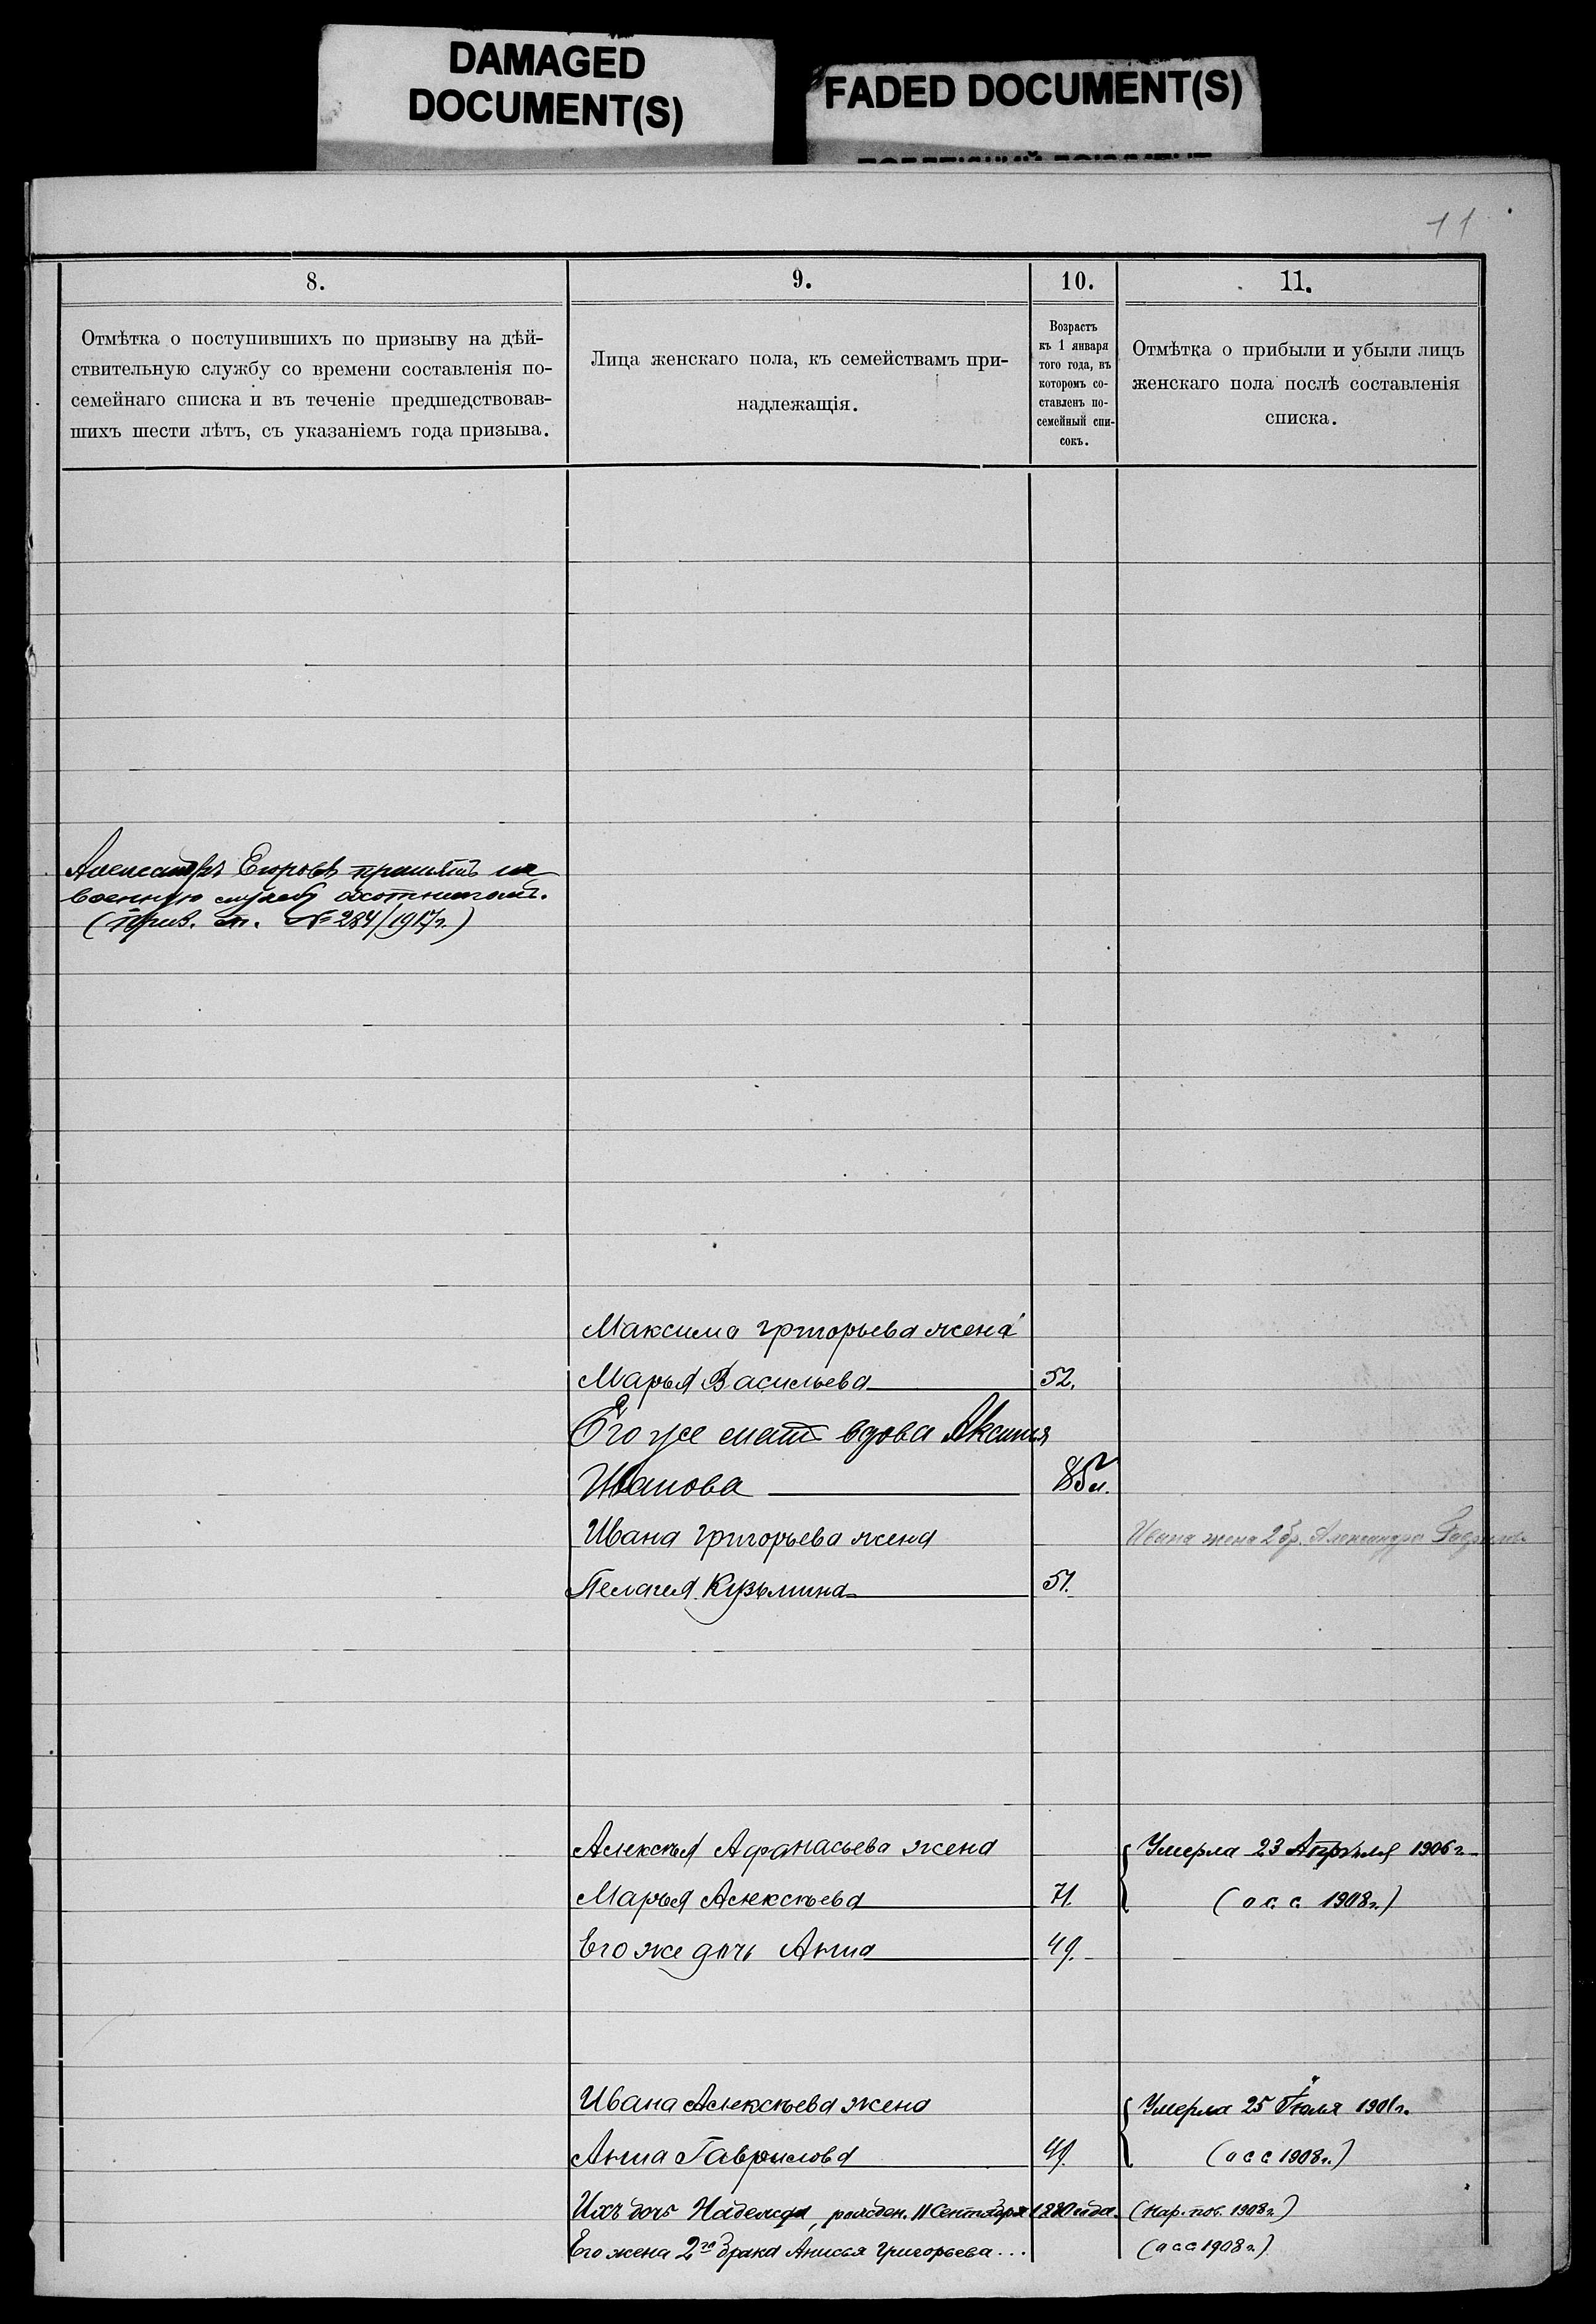 DAMAGED
DOCUMENT(S)
FADED DOCUMENT(S)
11
8.
Отмѣтка о поступившихъ по призыву на дѣй-
ствительную службу со времени составленія по-
семейнаго списка и въ теченіе предшедствовав-
шихъ шести лѣтъ, съ указаніемъ года призыва.
9.
Лица женскаго пола, къ семействамъ при-
надлежащія.
10.
Возрастъ
къ 1 января
того года, въ
которомъ со-
ставленъ по-
семейный спи-
сокъ.
11.
Отмѣтка о прибыли и убыли лицъ
женскаго пола послѣ составленія
списка.
Александръ Егоровъ принятъ на
военную службу охотникомъ.
(Приз. ст. № 284/1917г.)
Максима Григорьева жена
Марья Васильева 52.
Его же мать вдова Аксинья
Иванова 85
Ивана Григорьева жена
Ивана жена 2 бр. Александра
Пелагея Кузьмина 51.
Алексѣя Афанасьева жена
Умерла 23 Апрѣля 1906г.
Марья Алексѣева 71.
(о с с. 1908г.)
Его же дочь Анна 49.
Ивана Алексѣева жена
Умерла 25 Іюля 1901г.
Анна Гаврилова 49.
(о с с 1908г.)
Ихъ дочь Надежда, рожден. 11 Сентября 1880 года. (Нар. пов. 1908г.)
Его жена 2го брака Анисья Григорьева...
(о с с 1908г.)